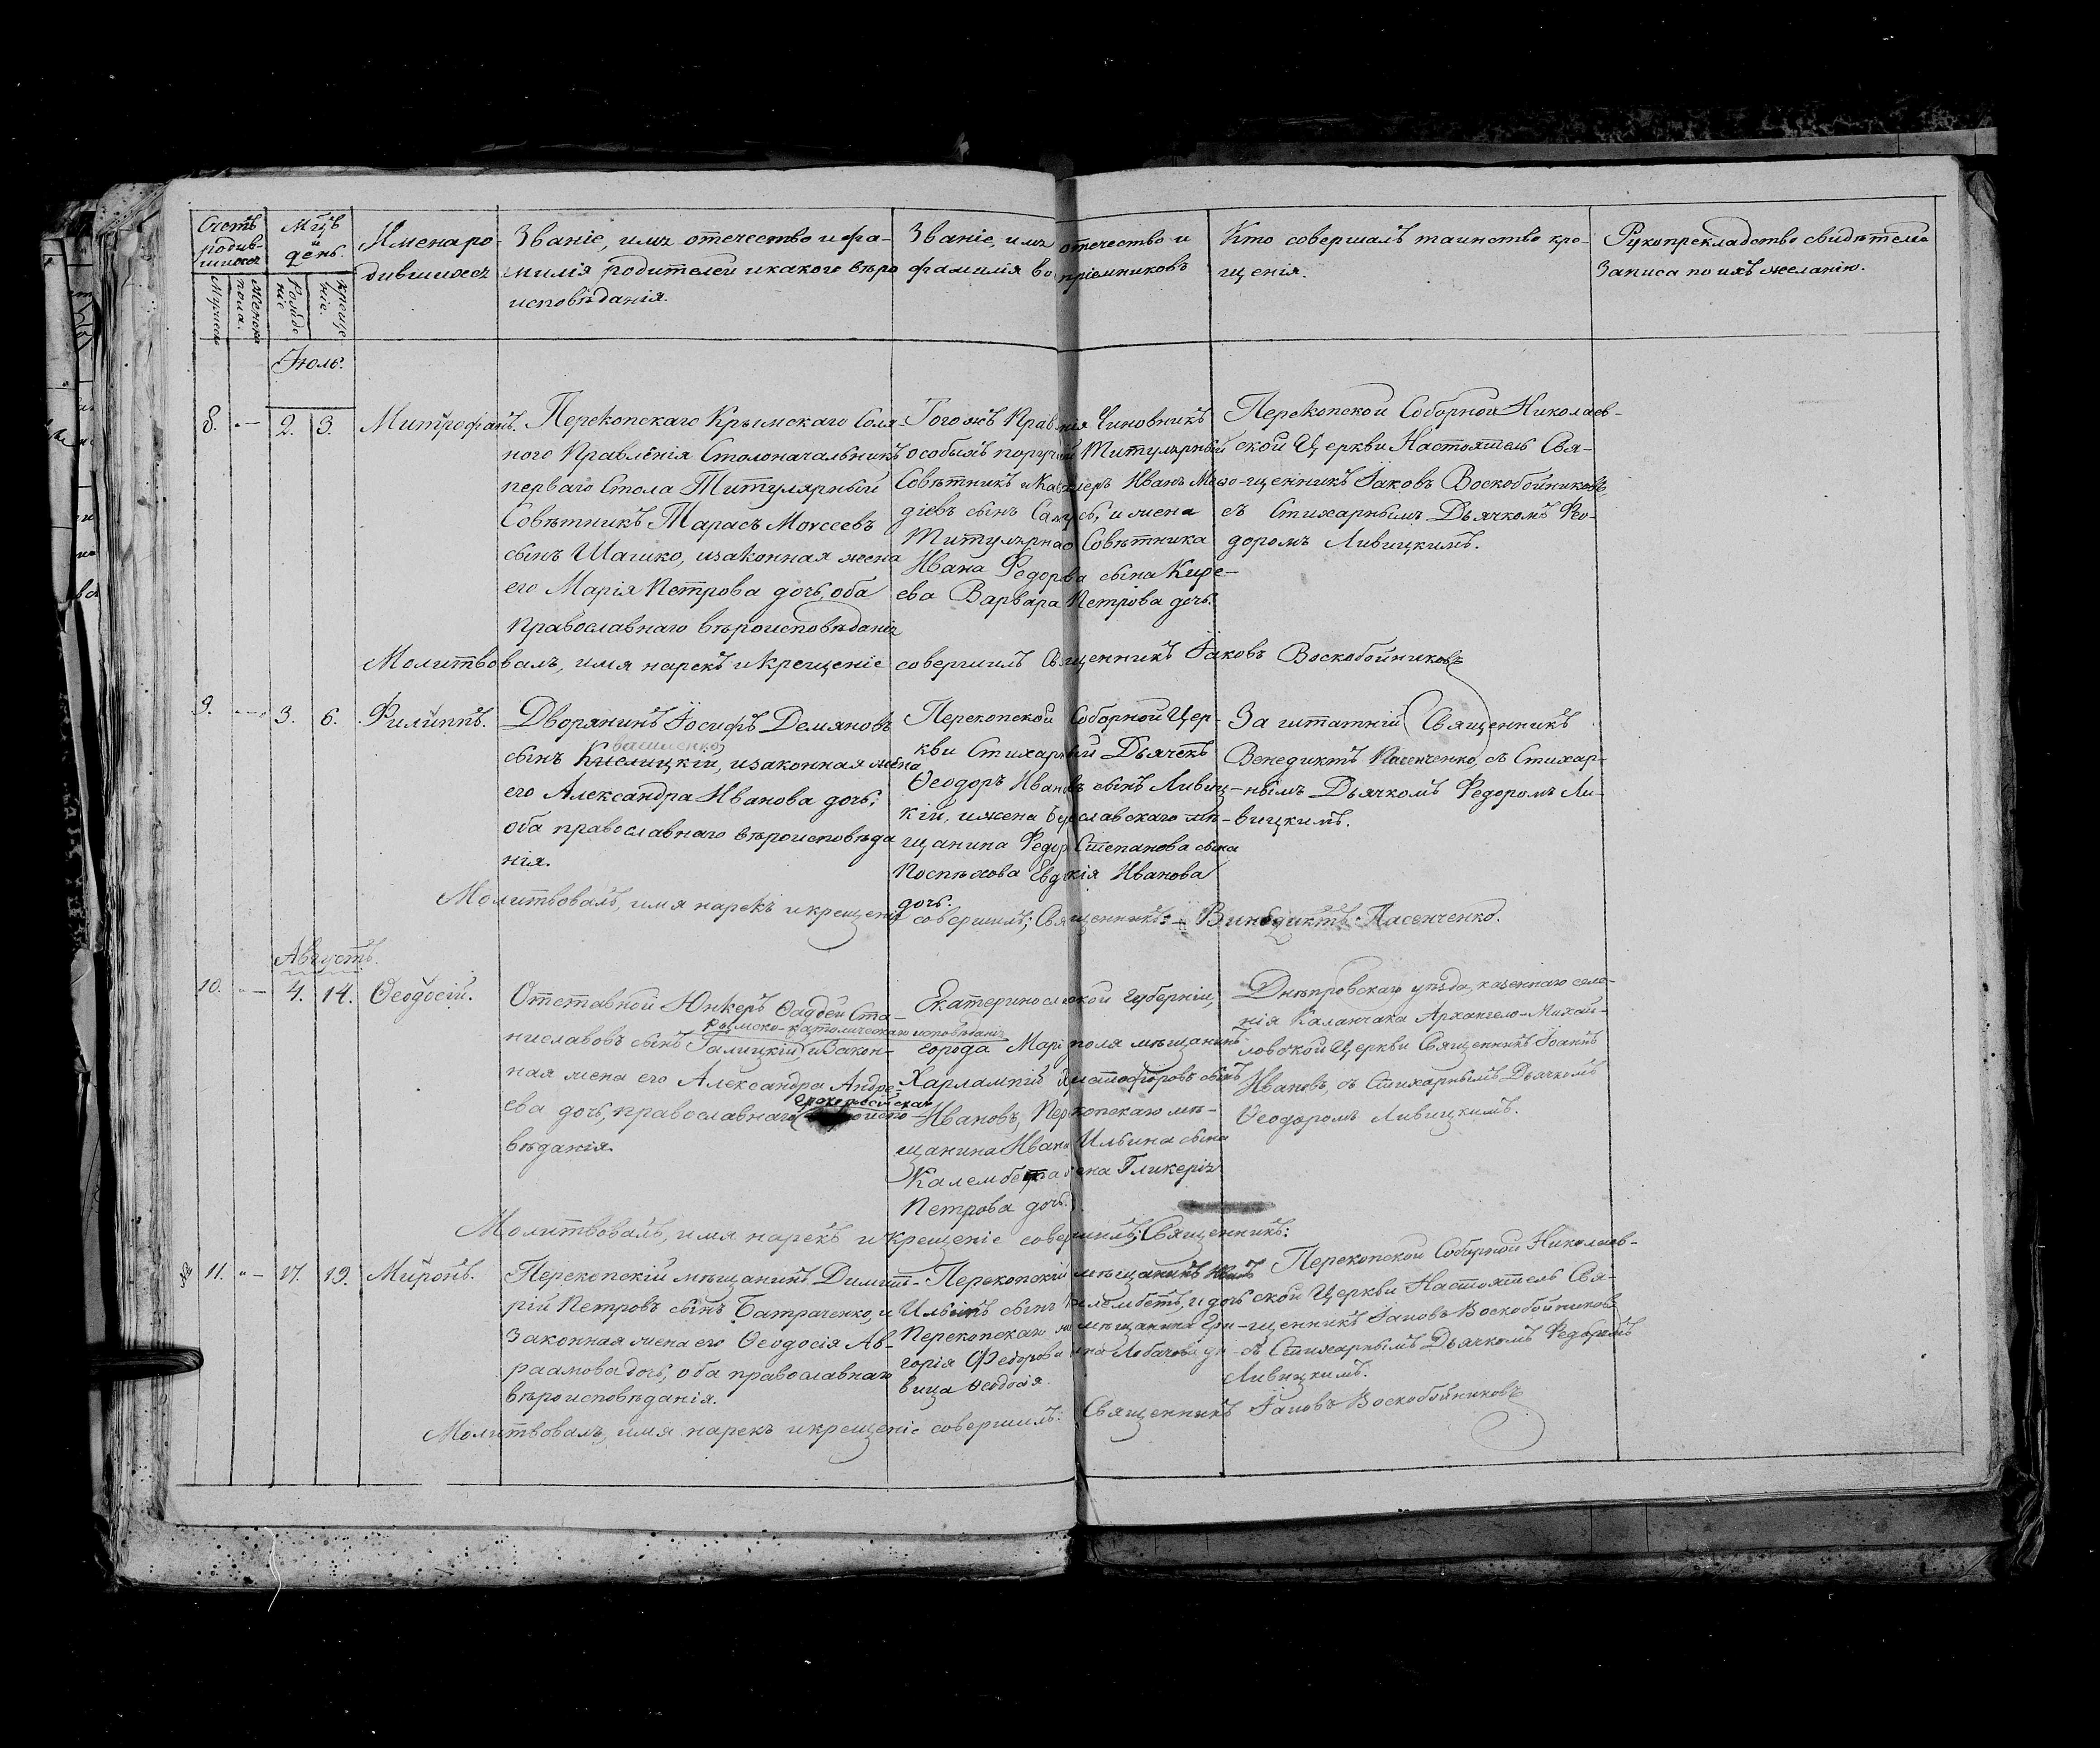 Счетъ родив-шихся
Мужеска
Женска пола.
Мцъ и день.
Рожденіе
Крещеніе.
Имена ро-
дившихся
Званіе, имя отечество и фа-
милія родителей и какого вѣро
исповѣданія.
Званіе, имя отечество и
фамилія воспріемниковъ
Кто совершалъ таинство кре-
щенія.
Рукоприкладство свидѣтелей
записа по ихъ желанію.
Іюль.
8. - 2. 3. Митрофанъ.
Перекопскаго Крымскаго Соля-
ного Правленія Столоначальникъ
перваго Стола Титулярный
Совѣтникъ Тарасъ Моvсеевъ
сынъ Шашко, и законная жена
его Марія Петрова дочь, оба
православнаго вѣроисповѣданія
Того жъ Правнія Чиновникъ
особыхъ поручій Титулярный
Совѣтникъ и Кавалеръ Иванъ
діевъ сынъ и жена
Титулярнаго Совѣтника
Ивана Федорова сына Кире-
ева Варвара Петрова дочь.
Перекопской Соборной Николаев-
ской Церкви Настоятель Свя-
щенникъ Іаковъ Воскобойниковъ,
съ Стихарнымъ Дьячкомъ Ѳео-
доромъ Ливицкимъ.
Молитвовалъ, имя нарекъ и крещеніе совершилъ Священникъ Іаковъ Воскобойниковъ
9. - 3. 6. Филиппъ.
Дворянинъ Іосифъ Демяновъ
сынъ Кислицкій, и законная жена
его Александра Иванова дочь,
оба православнаго вѣроисповѣда
нія.
Перекопской Соборной Цер-
кви Стихарный Дьячекъ
Ѳеодоръ Ивановъ сынъ Ливиц-
кій, и жена Бериславскаго мѣ-
щанина Федора Степанова сына
Поспѣхова Евдокія Иванова
дочь.
Заштатній Священникъ
Венедиктъ Пасенченко, съ Стихар-
нымъ Дьячкомъ Федоромъ Ли-
вицкимъ.
Молитвовалъ, имя нарекъ и крещеніе совершилъ; Священникъ: Винедиктъ Пасенченко.
Августъ.
10. - 4. 14. Ѳеодосій.
Отставной Юнкеръ Ѳаддей Ста-
римско-католическаго исповѣданія
ниславовъ сынъ Галицкій и Закон-
ная жена его Александра Андре-
ева дочь, православнаго грекороссійскаго
вѣданія.
Екатеринославской Губерніи,
города Маріуполя мѣщанинъ
Харлампій Христофоровъ сынъ
Ивановъ, Перекопскаго мѣ-
щанина Ивана Ильина сына
Калембета жена Гликерія
Петрова дочь.
Днѣпровскаго уѣзда, казеннаго селе-
нія Каланчака Архангело-Михай-
ловской Церкви Священникъ Іоаннъ
Ивановъ, съ Стихарнымъ Дьячкомъ
Ѳеодоромъ Ливицкимъ.
Молитвовалъ, имя нарекъ и крещеніе совершилъ; Священникъ:
11. - 17. 19. Миронъ.
Перекопскій мѣщанинъ Димит-
рій Петровъ сынъ Батраченко, и
Законная жена его Ѳеодосія Ав-
раамова дочь, оба православнаго
вѣроисповѣданія.
Перекопскій мѣщанинъ Иванъ
Ильинъ сынъ Калембетъ, и дочь
Перекопскаго мѣщанина Гри-
горія Федорова сына Лобачова дѣ-
вица Ѳеодосія
Перекопской Соборной Николаев-
ской Церкви Настоятель Свя-
щенникъ Іаковъ Воскобойниковъ
съ Стихарнымъ Дьячкомъ Федоромъ
Ливицкимъ.
Молитвовалъ, имя нарекъ и крещеніе совершилъ: Священникъ Іаковъ Воскобойниковъ